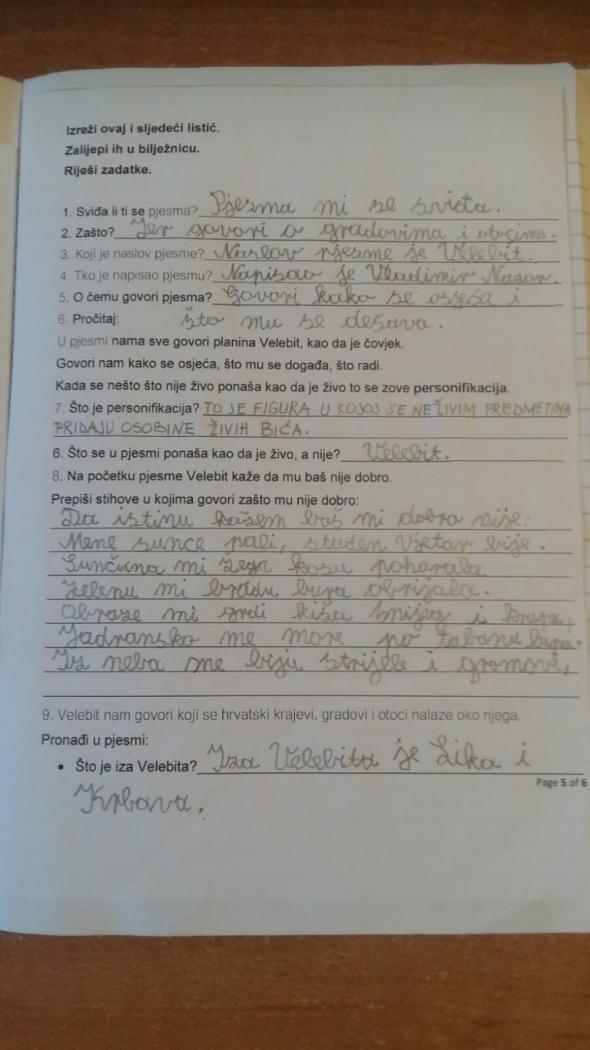 Izreži ovaj i sljedeći listić.
Zalijepi ih u bilježnicu.
Riješi zadatke.
1. Sviđa li ti se pjesma? Pjesma mi se sviđa.
2. Zašto? Jer govori o gradovima i otocima.
3. Koji je naslov pjesme? Naslov pjesme je Velebit.
4. Tko je napisao pjesmu? Napisao je Vladimir Nazor.
5. O čemu govori pjesma? Govori kako se osjeća i
6. Pročitaj: što mu se dešava.
U pjesmi nama sve govori planina Velebit, kao da je čovjek.
Govori nam kako se osjeća, što mu se događa, što radi.
Kada se nešto što nije živo ponaša kao da je živo to se zove personifikacija.
7. Što je personifikacija? TO JE FIGURA U KOJOJ SE NEŽIVIM PREDMETIMA
PRIDAJU OSOBINE ŽIVIH BIĆA.
6. Što se u pjesmi ponaša kao da je živo, a nije? Velebit.
8. Na početku pjesme Velebit kaže da mu baš nije dobro.
Prepiši stihove u kojima govori zašto mu nije dobro:
Da istinu kažem baš mi dobro nije:
Mene sunce pali, studen vjetar bije.
Sunčana mi žega kosu poharala
Zelenu mi bradu bura obrijala.
Obraze mi grdi kiša snijeg i krupa,
Jadransko me more po tabanu lupa.
Iz neba me biju strijele i gromovi,
9. Velebit nam govori koji se hrvatski krajevi, gradovi i otoci nalaze oko njega.
Pronađi u pjesmi:
• Što je iza Velebita? Iza Velebita je Lika i
Page 5 of 6
Krbava.